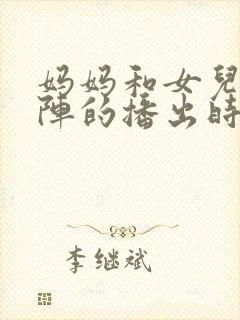 妈妈和女兒
陣的播出時
李继斌